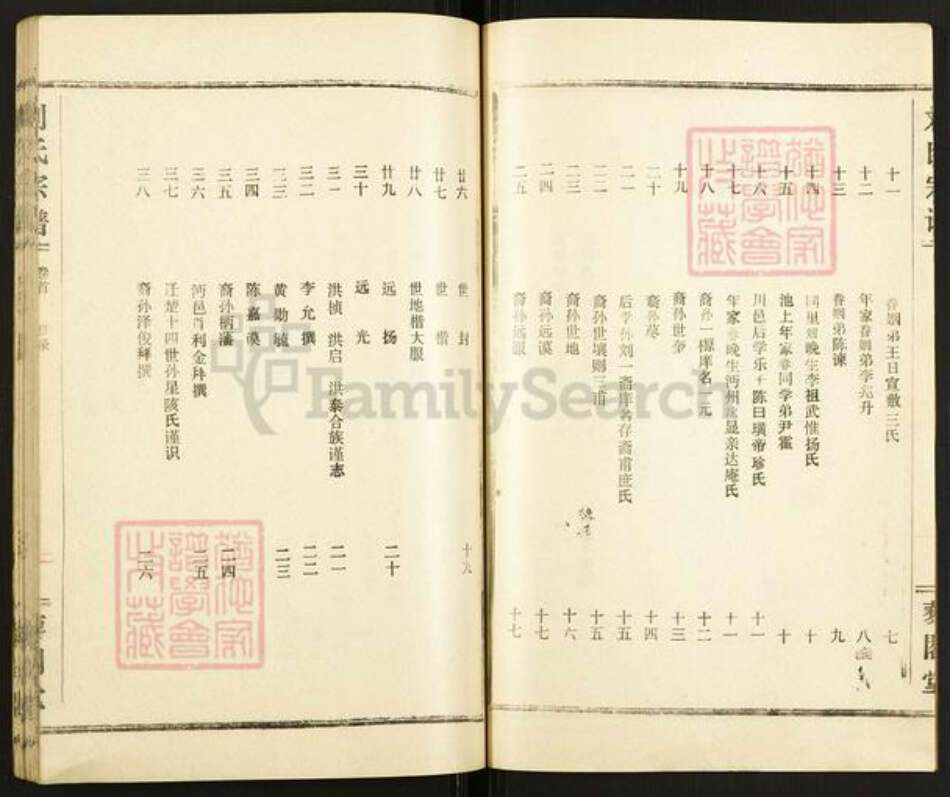 刘氏宗谱
十一 眷姻弟王日宣敷三氏 七
十二 年家眷姻弟李兆升 八
十三 眷姻弟陈谏 九
十四 同里姻晚生李祖武惟扬氏 十
十五 池上年家眷同学弟尹霍 十
十六 川邑后学乐 陈曰璜帝珍氏 十一
十七 年家眷晚生沔州 显亲达庵氏 十一
十八 裔孙一 庠名一元 十二
十九 裔孙世奎 十三
二十 裔孙 十四
二一 后学外刘一斋庠名存斋甫庶氏 十五
二二 裔孙世壤则三甫 十五
二三 裔孙世地 十六
二四 裔孙远谟 十七
二五 裔孙远服 十七
藜阁堂
廿六 世封 十九
廿七 世楷
廿八 世地楷大服
廿九 远扬 二十
三十 远光
三一 洪桢 洪启 洪泰合族谨志 二一
三二 李允撰 二二
三三 黄勋毓 二三
三四 陈嘉谟
三五 裔孙炳藩 二四
三六 沔邑肖利金拜撰 二五
三七 迁楚十四世孙星陔氏谨识
三八 裔孙泽俊拜撰 二六
刘氏宗谱 卷首 目录
FamilySearch